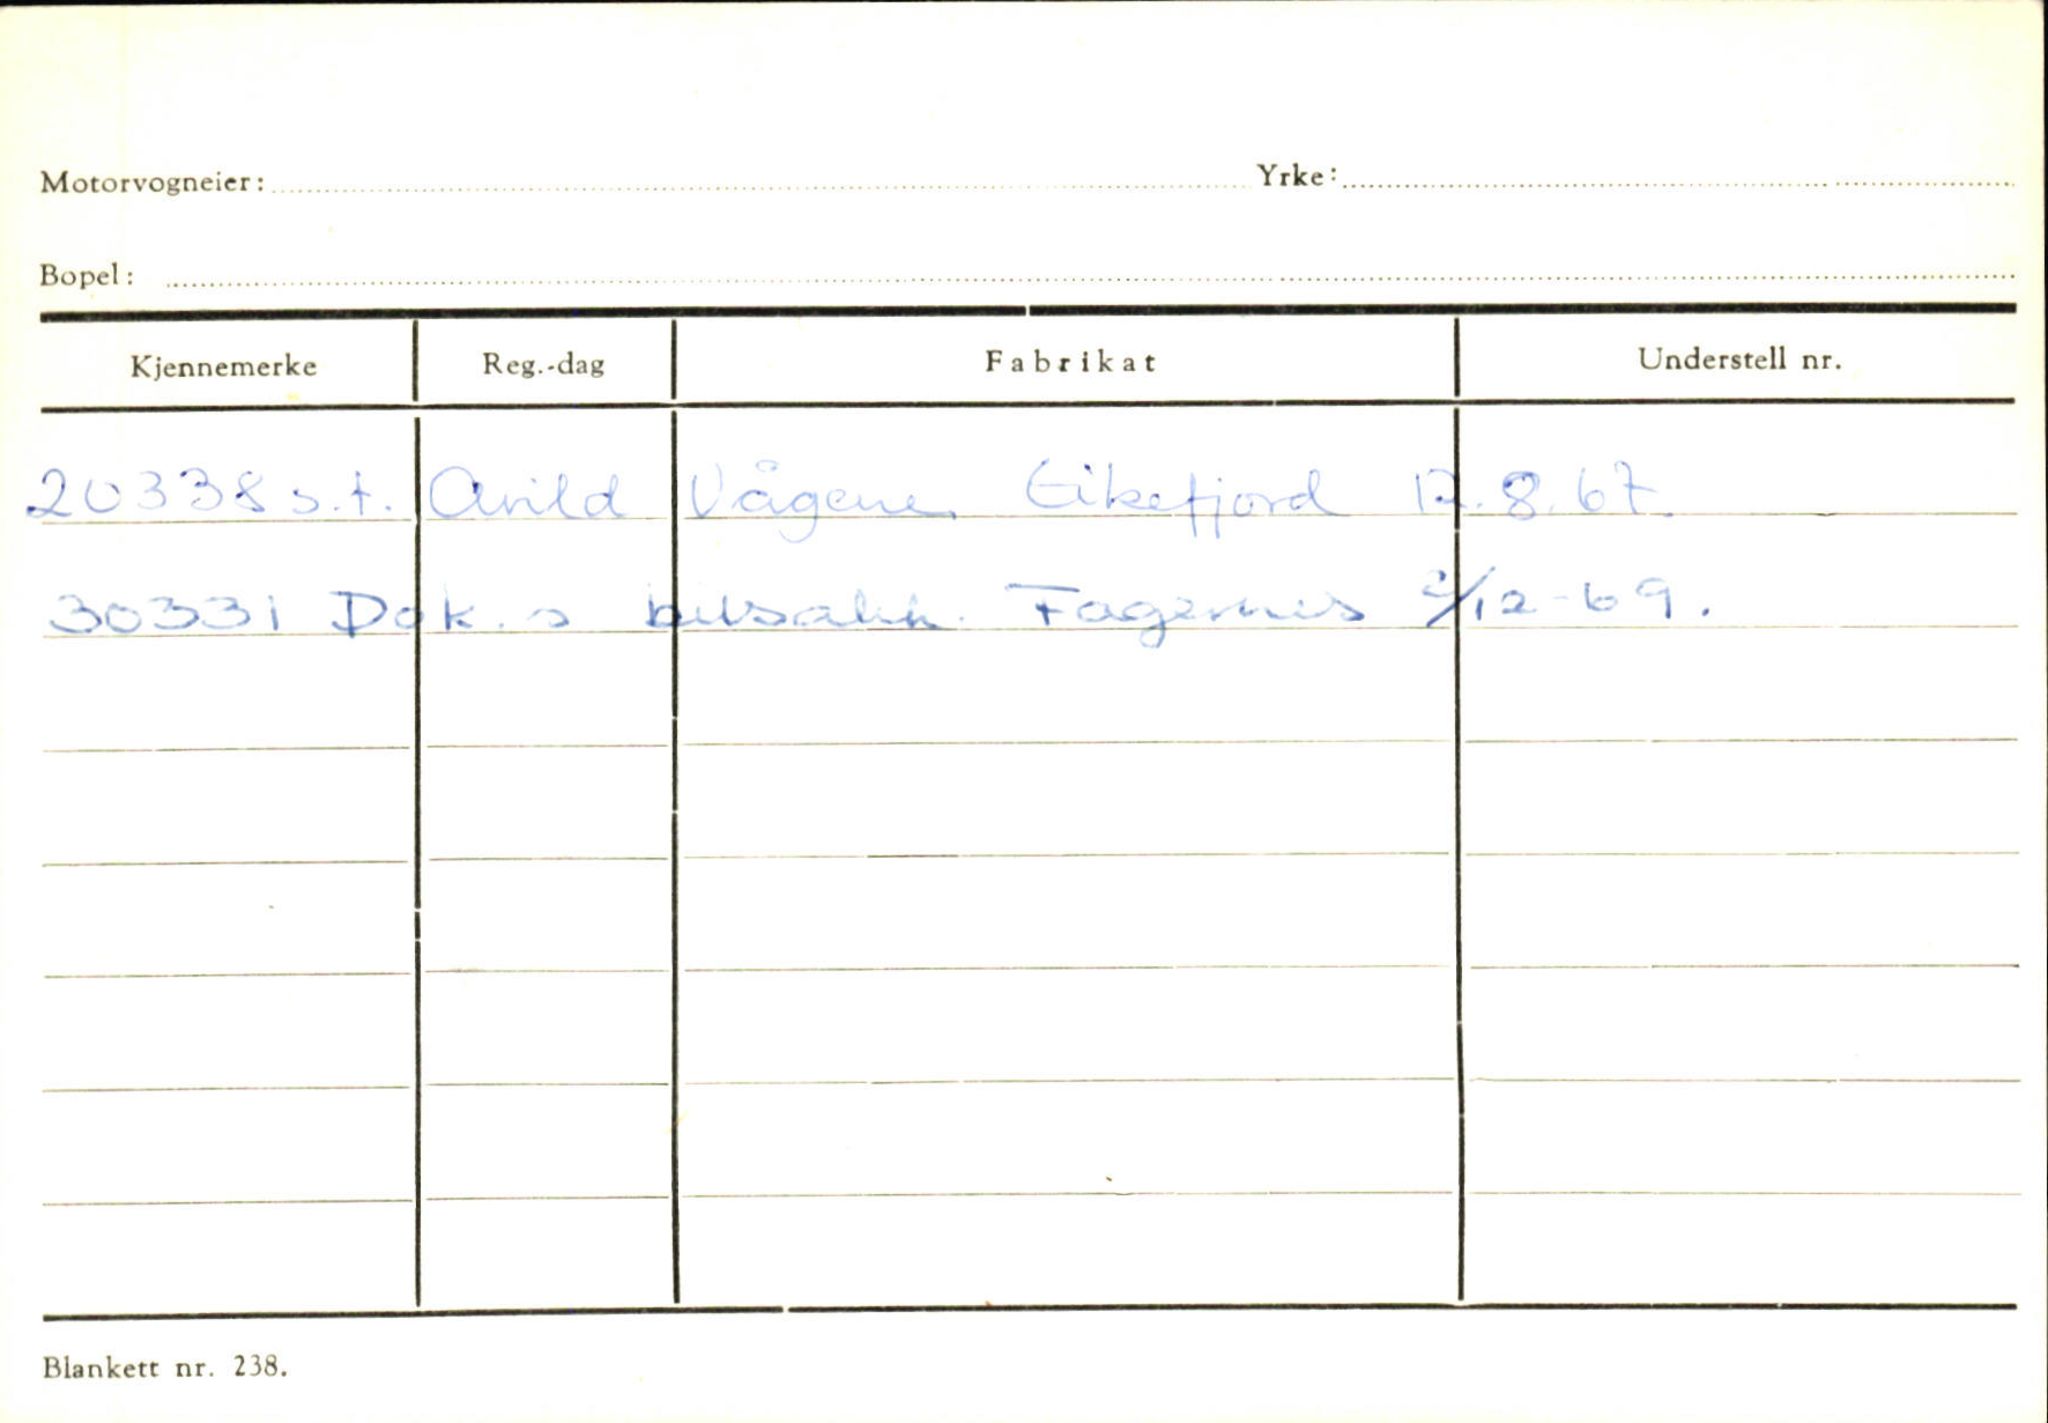 Motorvogneier: Yrke:
Bopel:
Kjennemerke Reg.-dag Fabrikat Understell nr.
20338 s.t. Arild Vågene Eikefjord 12.8.67.
30331 Dok. s bilsakk. Fagernes 2/12-69.
Blankett nr. 238.